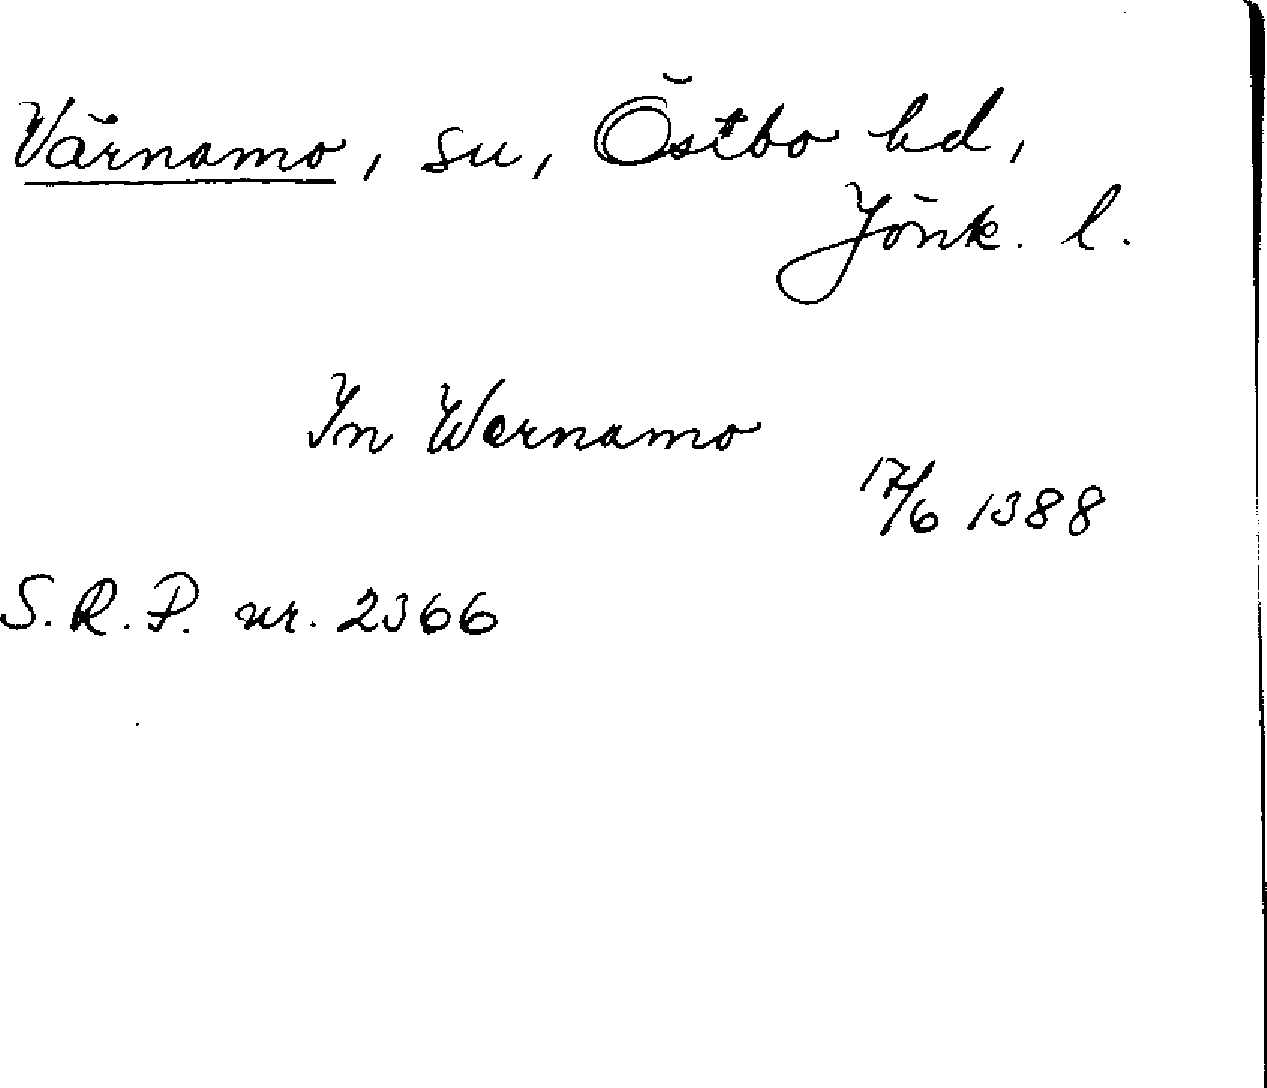 Värnamo, sn, Östbo hd,
Jönk. l.
In Wernamo
17/6 1388
S.R.P. nr. 2366